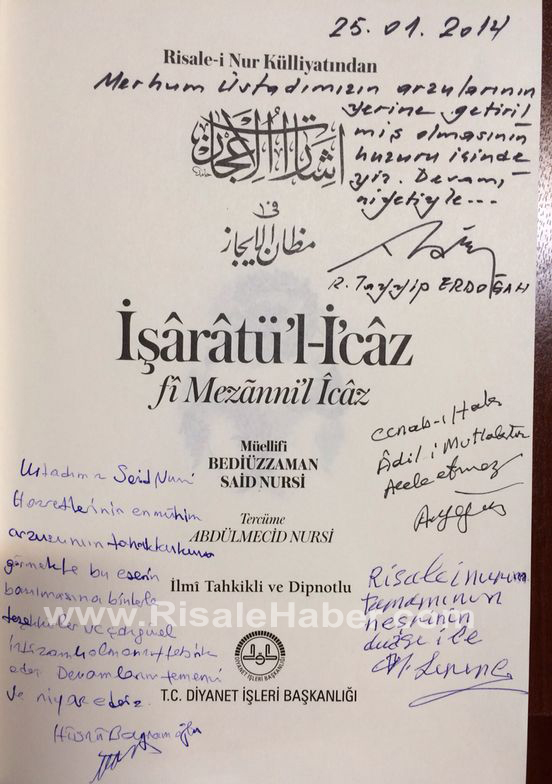 25.01.2014
Risale-i Nur Külliyatından
Merhum Üstadımızın arzularının
yerine getiril
miş olmasının
huzuru içinde
yiz. Devamı
niyetiyle...
R. Tayyip ERDOĞAN
اشارات الاعجاز
في
مظان الايجاز
İşârâtü'l-İ'câz
fî Mezânni'l Îcâz
Müellifi
BEDİÜZZAMAN
SAİD NURSİ
Tercüme
ABDÜLMECİD NURSİ
İlmî Tahkikli ve Dipnotlu
DİYANET İŞLERİ BAŞKANLIĞI
T.C. DİYANET İŞLERİ BAŞKANLIĞI
Cenab-ı Hak
Âdil-i Mutlaktır
Acele etmez
Risale-i nurun
tamamının
neşrinin
ile
Üstadımız Said Nursi
Hazretlerinin en mühim
arzusunun tahakkukunu
görmekle bu eserin
basılmasına binlerle
teşekkürler ve
eder. Devamlarını temenni
ve niyaz ederiz.
Hüsnü Bayramoğlu
www.RisaleHaber.com